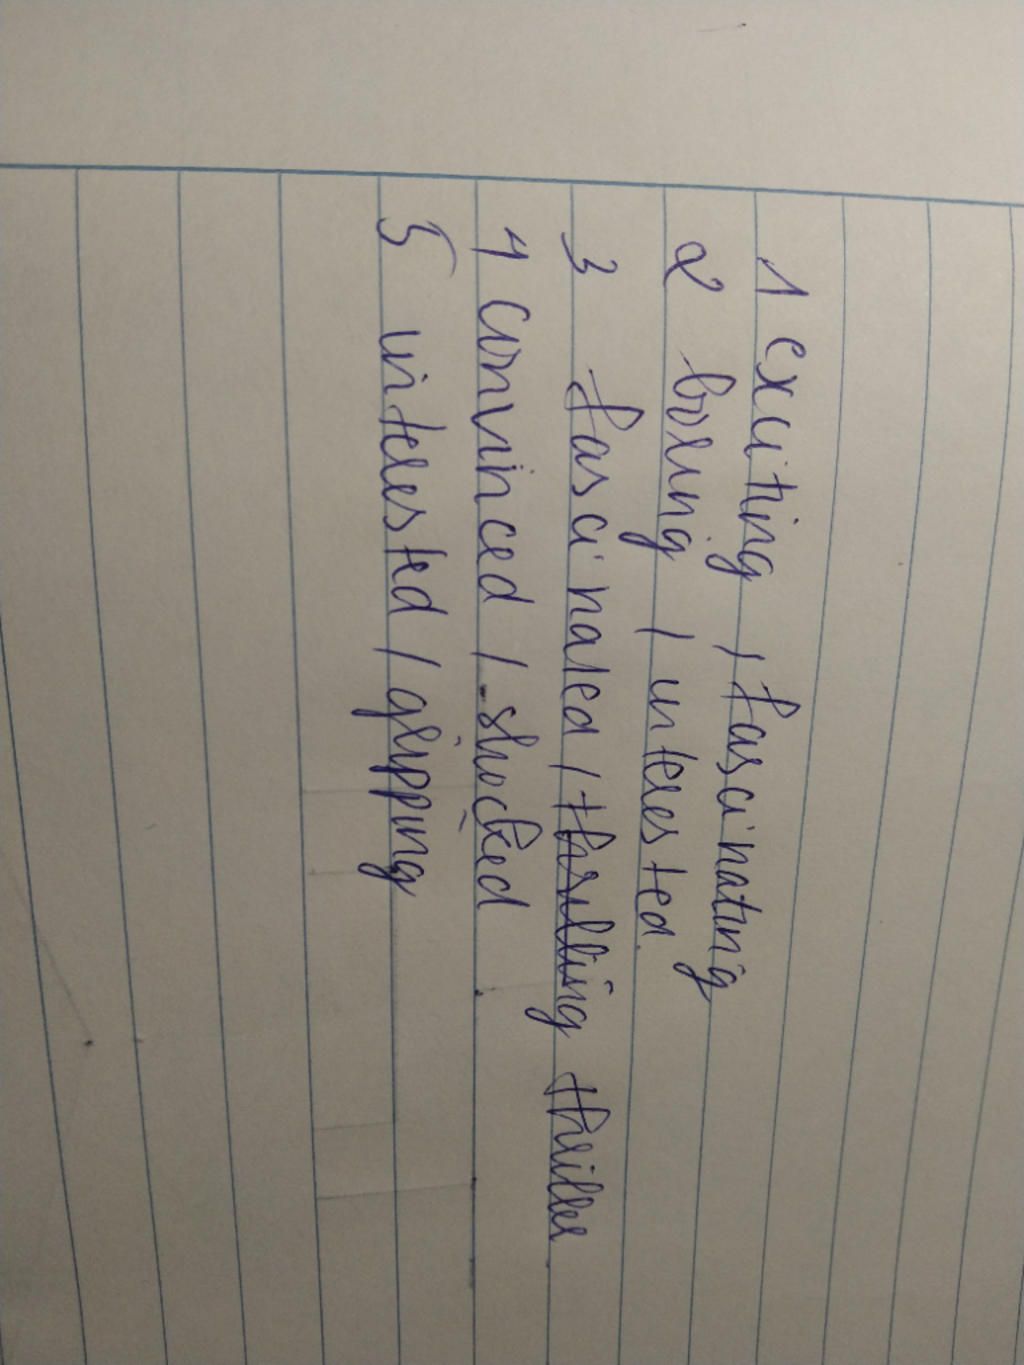 1 exciting / fascinating
2 boring / interested
3 fascinated / thrilling thriller
4 convinced / shocked
5 interested / gripping